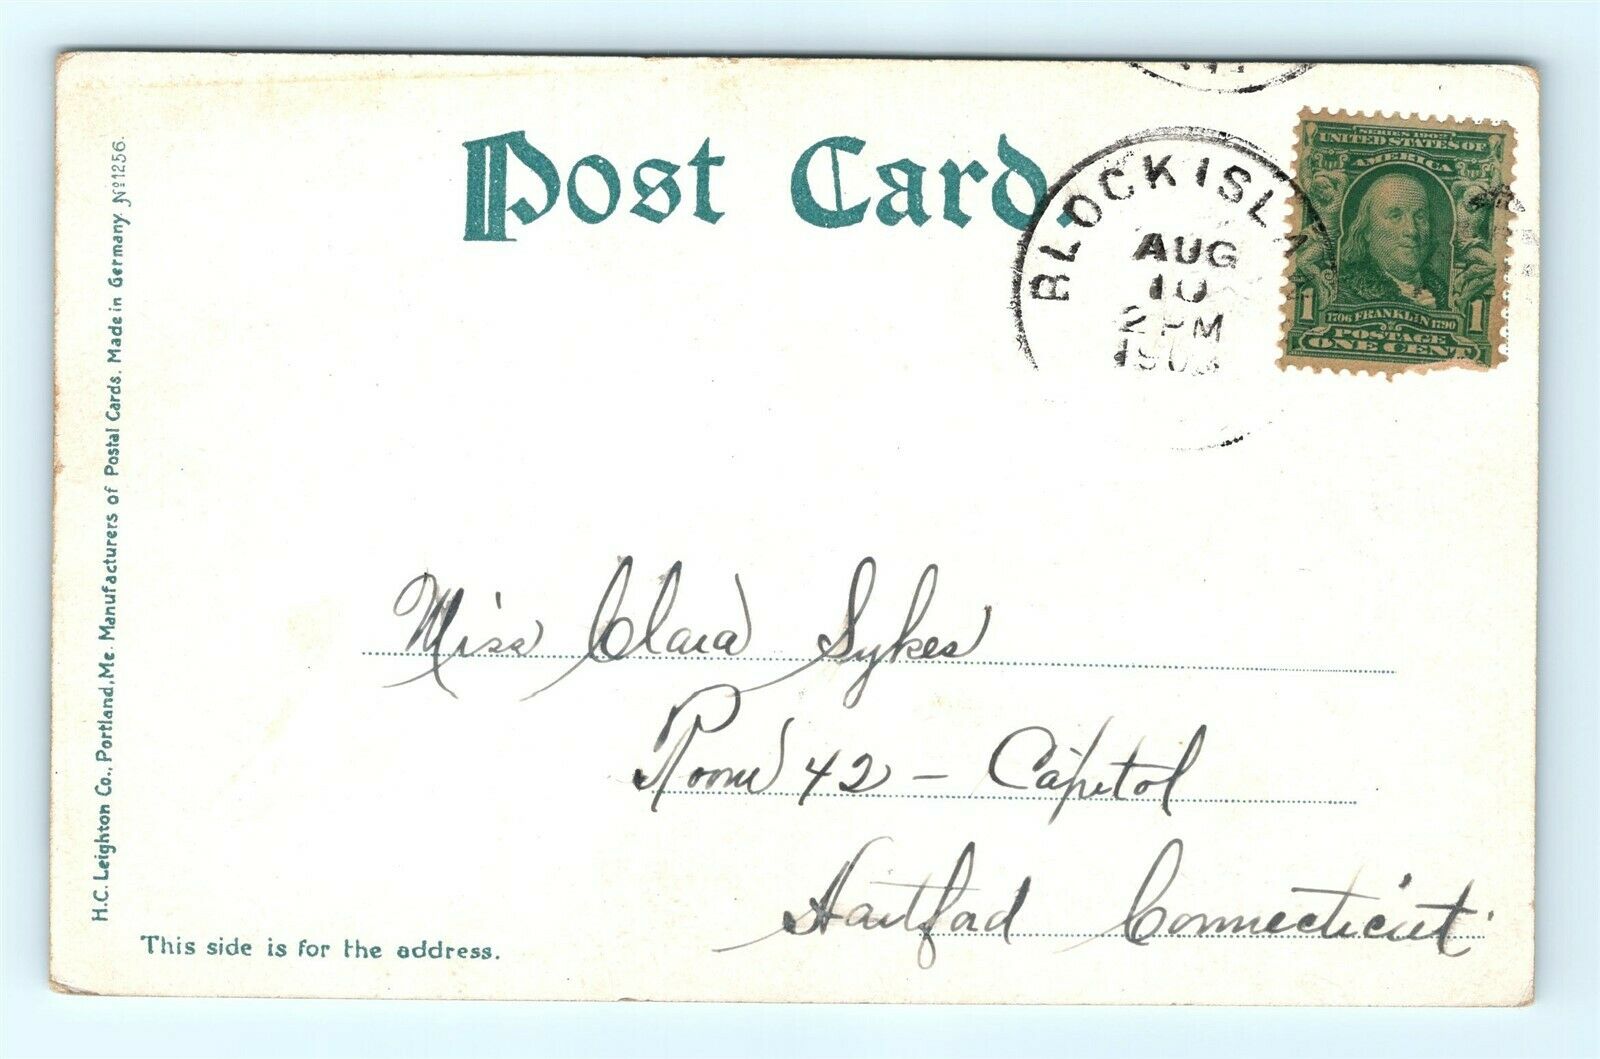 Post Card.
BLOCK ISLA
AUG
10
2 PM
SERIES 1902
UNITED STATES OF
AMERICA
1 1
1706 FRANKLIN 1790
POSTAGE
ONE CENT
Miss Clara Sykes
Room 42 – Capitol
Hartford Connecticut
This side is for the address.
H.C. Leighton Co., Portland, Me. Manufacturers of Postal Cards. Made in Germany. No 1256.